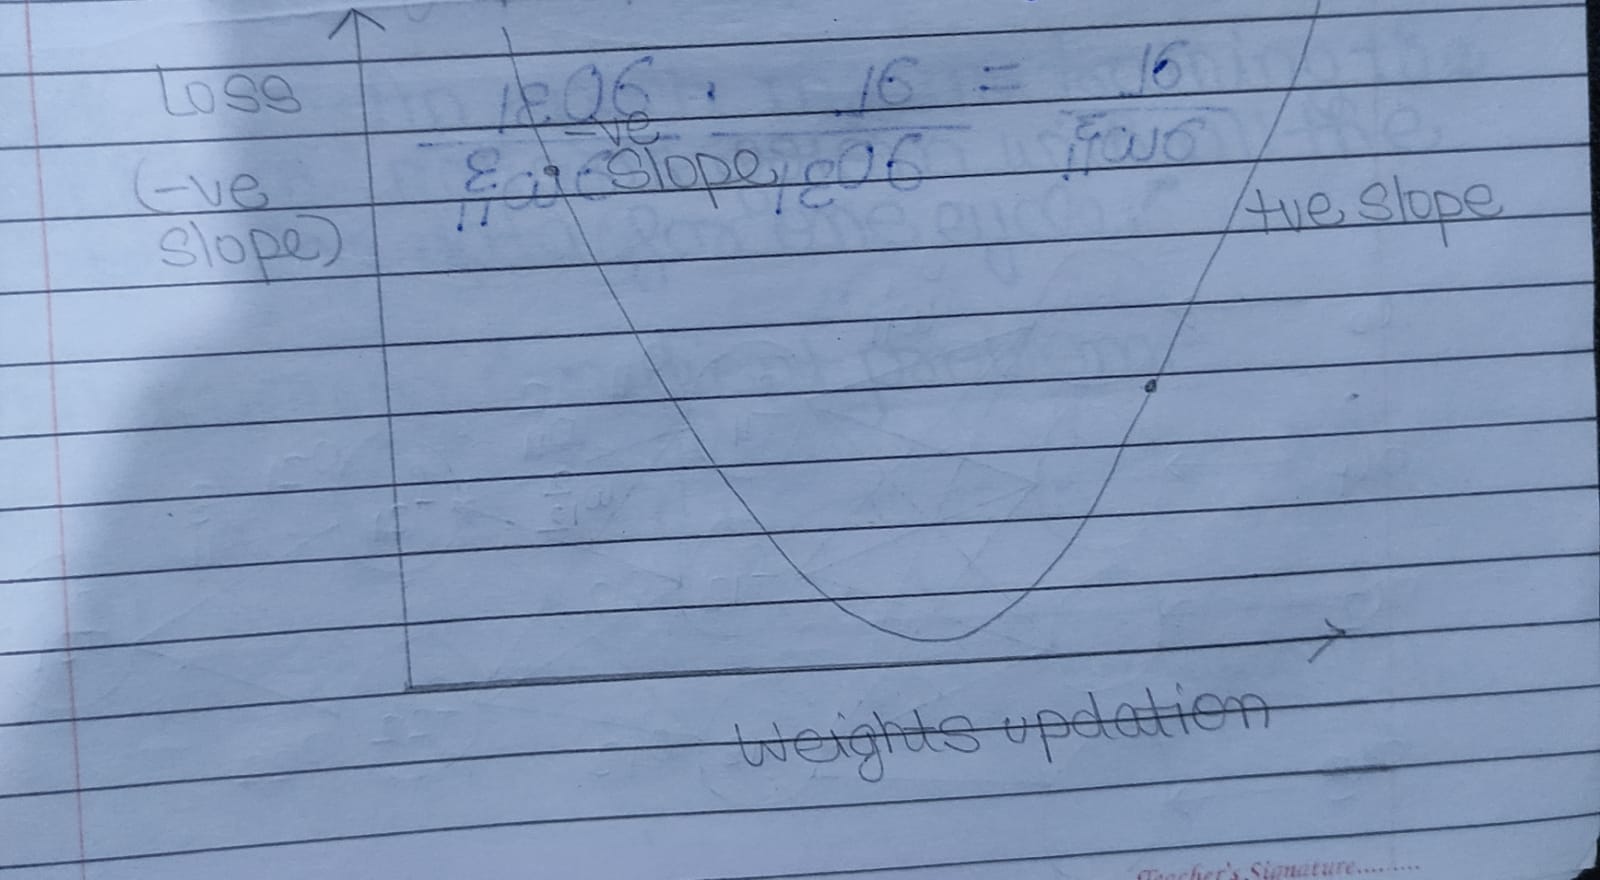 Loss
-ve
slope
(-ve
slope)
+ve slope
Weights updation
Teacher's Signature.........